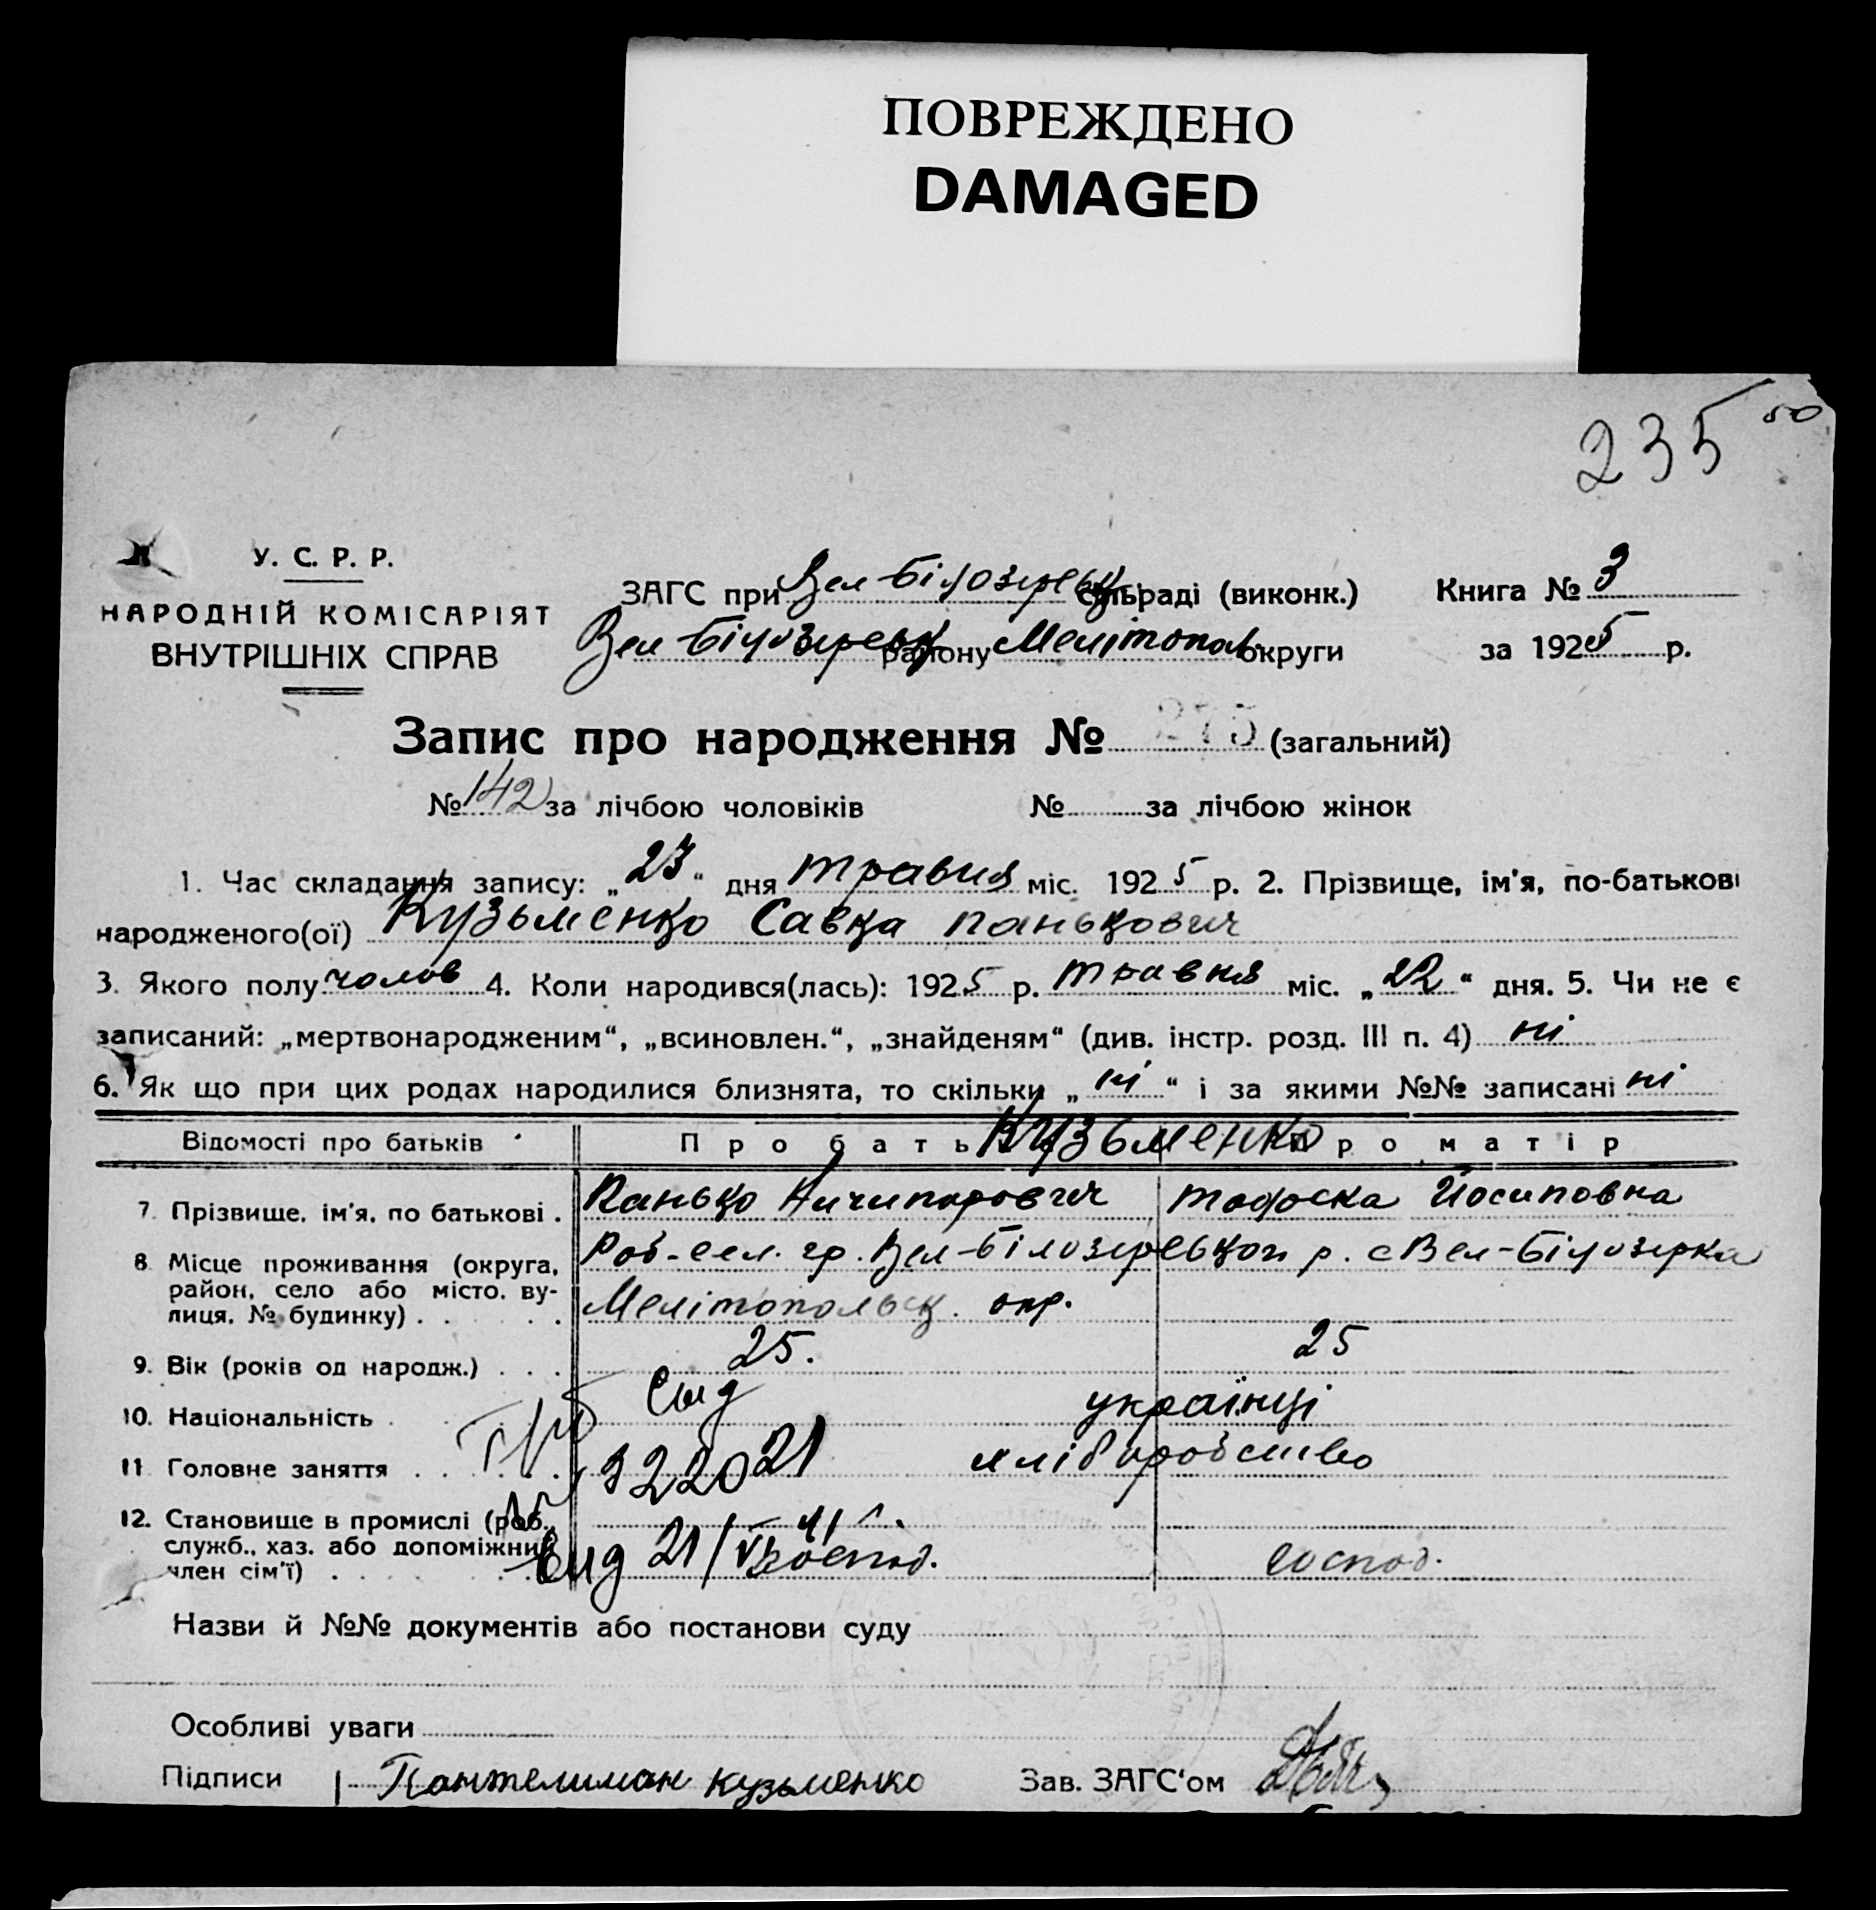 ПОВРЕЖДЕНО
DAMAGED
235 50
У. С. Р. Р.
НАРОДНІЙ КОМІСАРІЯТ
ВНУТРІШНІХ СПРАВ
ЗАГС при Вел-Білозерськ. сільраді (виконк.)
Вел-Білозерськ району Мелітопол. округи
Книга № 3
за 1925 р.
Запис про народження № 275 (загальний)
№ 142 за лічбою чоловіків № за лічбою жінок
1. Час складання запису: „23“ дня травня міс. 1925 р. 2. Прізвище, ім'я, по-батькові
народженого(ої) Кузьменко Савка Панькович
3. Якого полу чолов 4. Коли народився(лась): 1925 р. травня міс. „22“ дня. 5. Чи не є
записаний: „мертвонародженим“, „всиновлен.“, „знайденям“ (див. інстр. розд. III п. 4) ні
6. Як що при цих родах народилися близнята, то скільки „ні“ і за якими №№ записані ні
Відомості про батьків Про батька Кузьменко Про матір
7. Прізвище, ім'я, по батькові . Панько Ничипорович Тодоска Йосиповна
8. Місце проживання (округа, район, село або місто, вулиця, № будинку) . . . . Роб-сел. гр. Вел-Білозерськог р. с Вел-Білозерка
Мелітопольськ. окр.
9. Вік (років од народж.) . . . 25. 25
10. Національність українці
11. Головне заняття хліборобство
322021
12. Становище в промислі (роб., служб., хаз. або допоміжний член сім'ї) . господ. господ.
21/VI 41 г.
Назви й №№ документів або постанови суду
Особливі уваги
Підписи Пантелимон Кузьменко Зав. ЗАГС‘ом